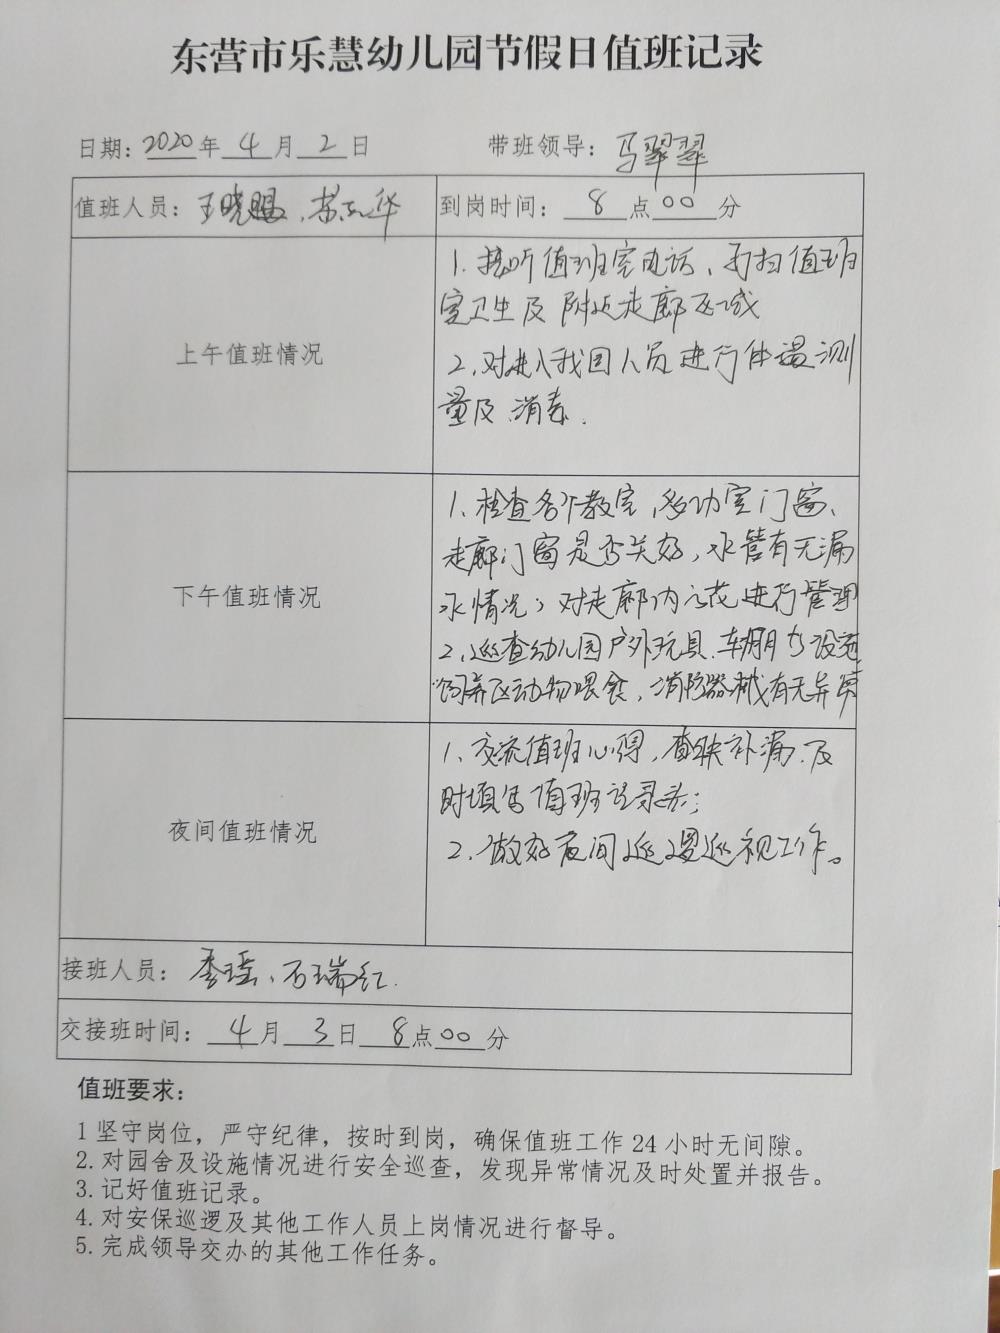 东营市乐慧幼儿园节假日值班记录
日期：2020年 4 月 2 日 带班领导：马翠翠
值班人员：王晓 、苏 华 到岗时间： 8 点 00 分
1. 接听值班室电话、打扫值班
室卫生及附近走廊区域
上午值班情况
2. 对进入我园人员进行体温测
量及消毒.
1、检查各个教室，多功室门窗、
走廊门窗是否关好，水管有无漏
水情况；对走廊内 花进行管理
下午值班情况
2、巡查幼儿园户外玩具、车棚 设施
饲养区动物喂食，消防器械有无异常
1、交流值班心得，查缺补漏.及
时填写值班记录表；
夜间值班情况
2. 做好夜间巡逻巡视工作。
接班人员：李瑶、石瑞红.
交接班时间： 4 月 3 日 8 点 00 分
值班要求：
1 坚守岗位，严守纪律，按时到岗，确保值班工作 24 小时无间隙。
2. 对园舍及设施情况进行安全巡查，发现异常情况及时处置并报告。
3. 记好值班记录。
4. 对安保巡逻及其他工作人员上岗情况进行督导。
5. 完成领导交办的其他工作任务。